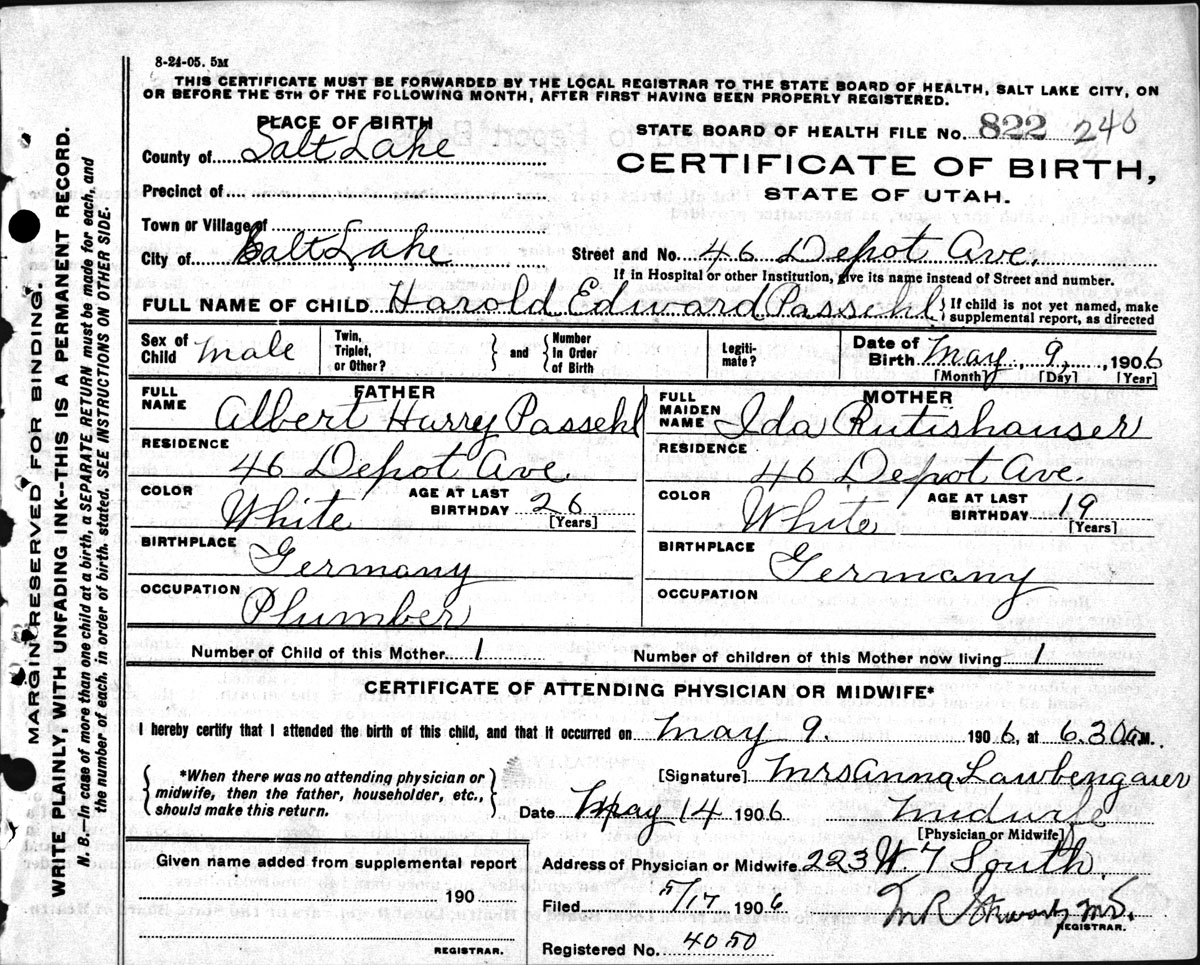 8-24-05. 5M
THIS CERTIFICATE MUST BE FORWARDED BY THE LOCAL REGISTRAR TO THE STATE BOARD OF HEALTH, SALT LAKE CITY, ON
OR BEFORE THE 5TH OF THE FOLLOWING MONTH, AFTER FIRST HAVING BEEN PROPERLY REGISTERED.
PLACE OF BIRTH
County of Salt Lake
Precinct of
Town or Village of
City of Salt Lake
STATE BOARD OF HEALTH FILE No. 822 240
CERTIFICATE OF BIRTH,
STATE OF UTAH.
Street and No. 46 Depot Ave.
If in Hospital or other Institution, give its name instead of Street and number.
FULL NAME OF CHILD Harold Edward Passehl } If child is not yet named, make
supplemental report, as directed
Sex of
Child Male
Twin,
Triplet,
or Other?
} and {
Number
in Order
of Birth
Legiti-
mate?
Date of
Birth May 9, 1906
[Month] [Day] [Year]
FATHER
FULL
NAME Albert Harry Passehl
RESIDENCE
46 Depot Ave.
COLOR White AGE AT LAST
BIRTHDAY 26
[Years]
BIRTHPLACE Germany
OCCUPATION
Plumber
MOTHER
FULL
MAIDEN
NAME Ida Rutishauser
RESIDENCE
46 Depot Ave.
COLOR White AGE AT LAST
BIRTHDAY 19
[Years]
BIRTHPLACE Germany
OCCUPATION
Number of Child of this Mother 1 Number of children of this Mother now living 1
CERTIFICATE OF ATTENDING PHYSICIAN OR MIDWIFE*
I hereby certify that I attended the birth of this child, and that it occurred on May 9. 1906, at 6.30 a.M.
{ *When there was no attending physician or
midwife, then the father, householder, etc.,
should make this return. }
[Signature] Mrs Anna Lawbengauer
Date May 14 1906 Midwife
[Physician or Midwife]
Given name added from supplemental report
190
REGISTRAR.
Address of Physician or Midwife 223 W. 7 South.
Filed 5/17 1906
REGISTRAR.
Registered No. 4050
MARGIN RESERVED FOR BINDING.
WRITE PLAINLY, WITH UNFADING INK--THIS IS A PERMANENT RECORD.
N. B.—In case of more than one child at a birth, a SEPARATE RETURN must be made for each, and
the number of each, in order of birth, stated. SEE INSTRUCTIONS ON OTHER SIDE.